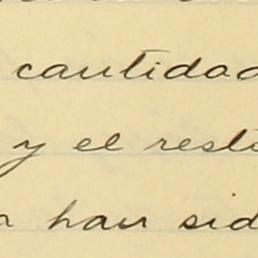 cantidad
y el resto
a han sid